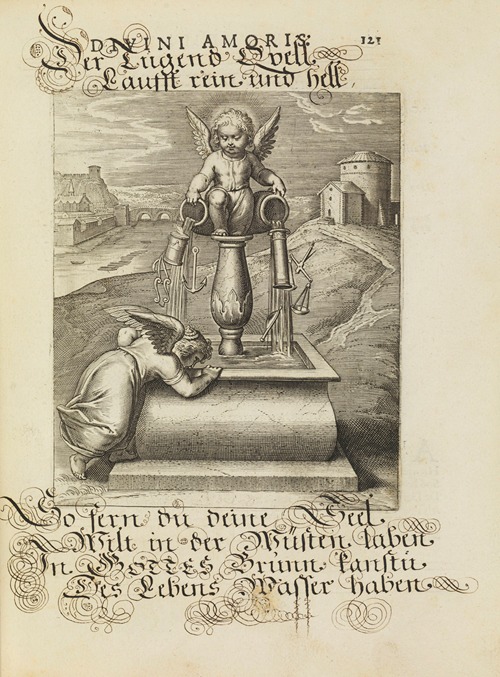 DIVINI AMORIS. 121
Der Tugend Quell
Laufft rein und hell,
So fern du deine Seel
Wilt in der Wüsten laben
In GOTTES Brunn kanstu
Des Lebens Wasser haben